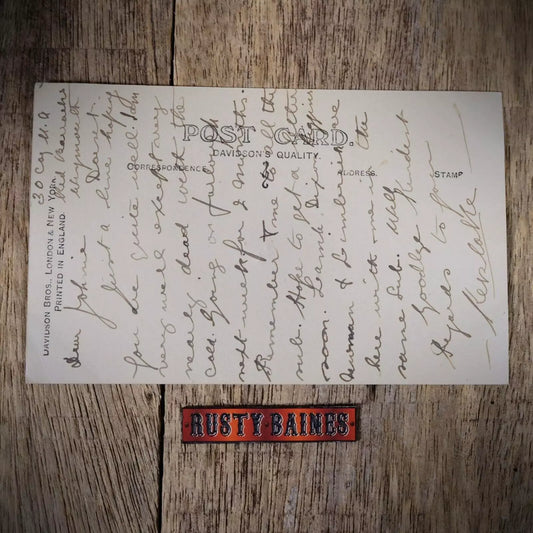 POST CARD.
DAVIDSON'S QUALITY.
CORRESPONDENCE
ADDRESS
STAMP
DAVIDSON BROS., LONDON & NEW YORK,
PRINTED IN ENGLAND.
30 Coy M.A
Red Barracks
Weymouth
Dear Johnie
Just a line hoping
you are quite well. I am
very well except
nearly dead with the
cold. Going on furlough
next week for 2 months.
Remember me to all the
sub. Hope to get a letter
soon.
Newman &
here with me in the
same sub. Well
Goodbye Kindest
Regards to you
RUSTY·BAINES